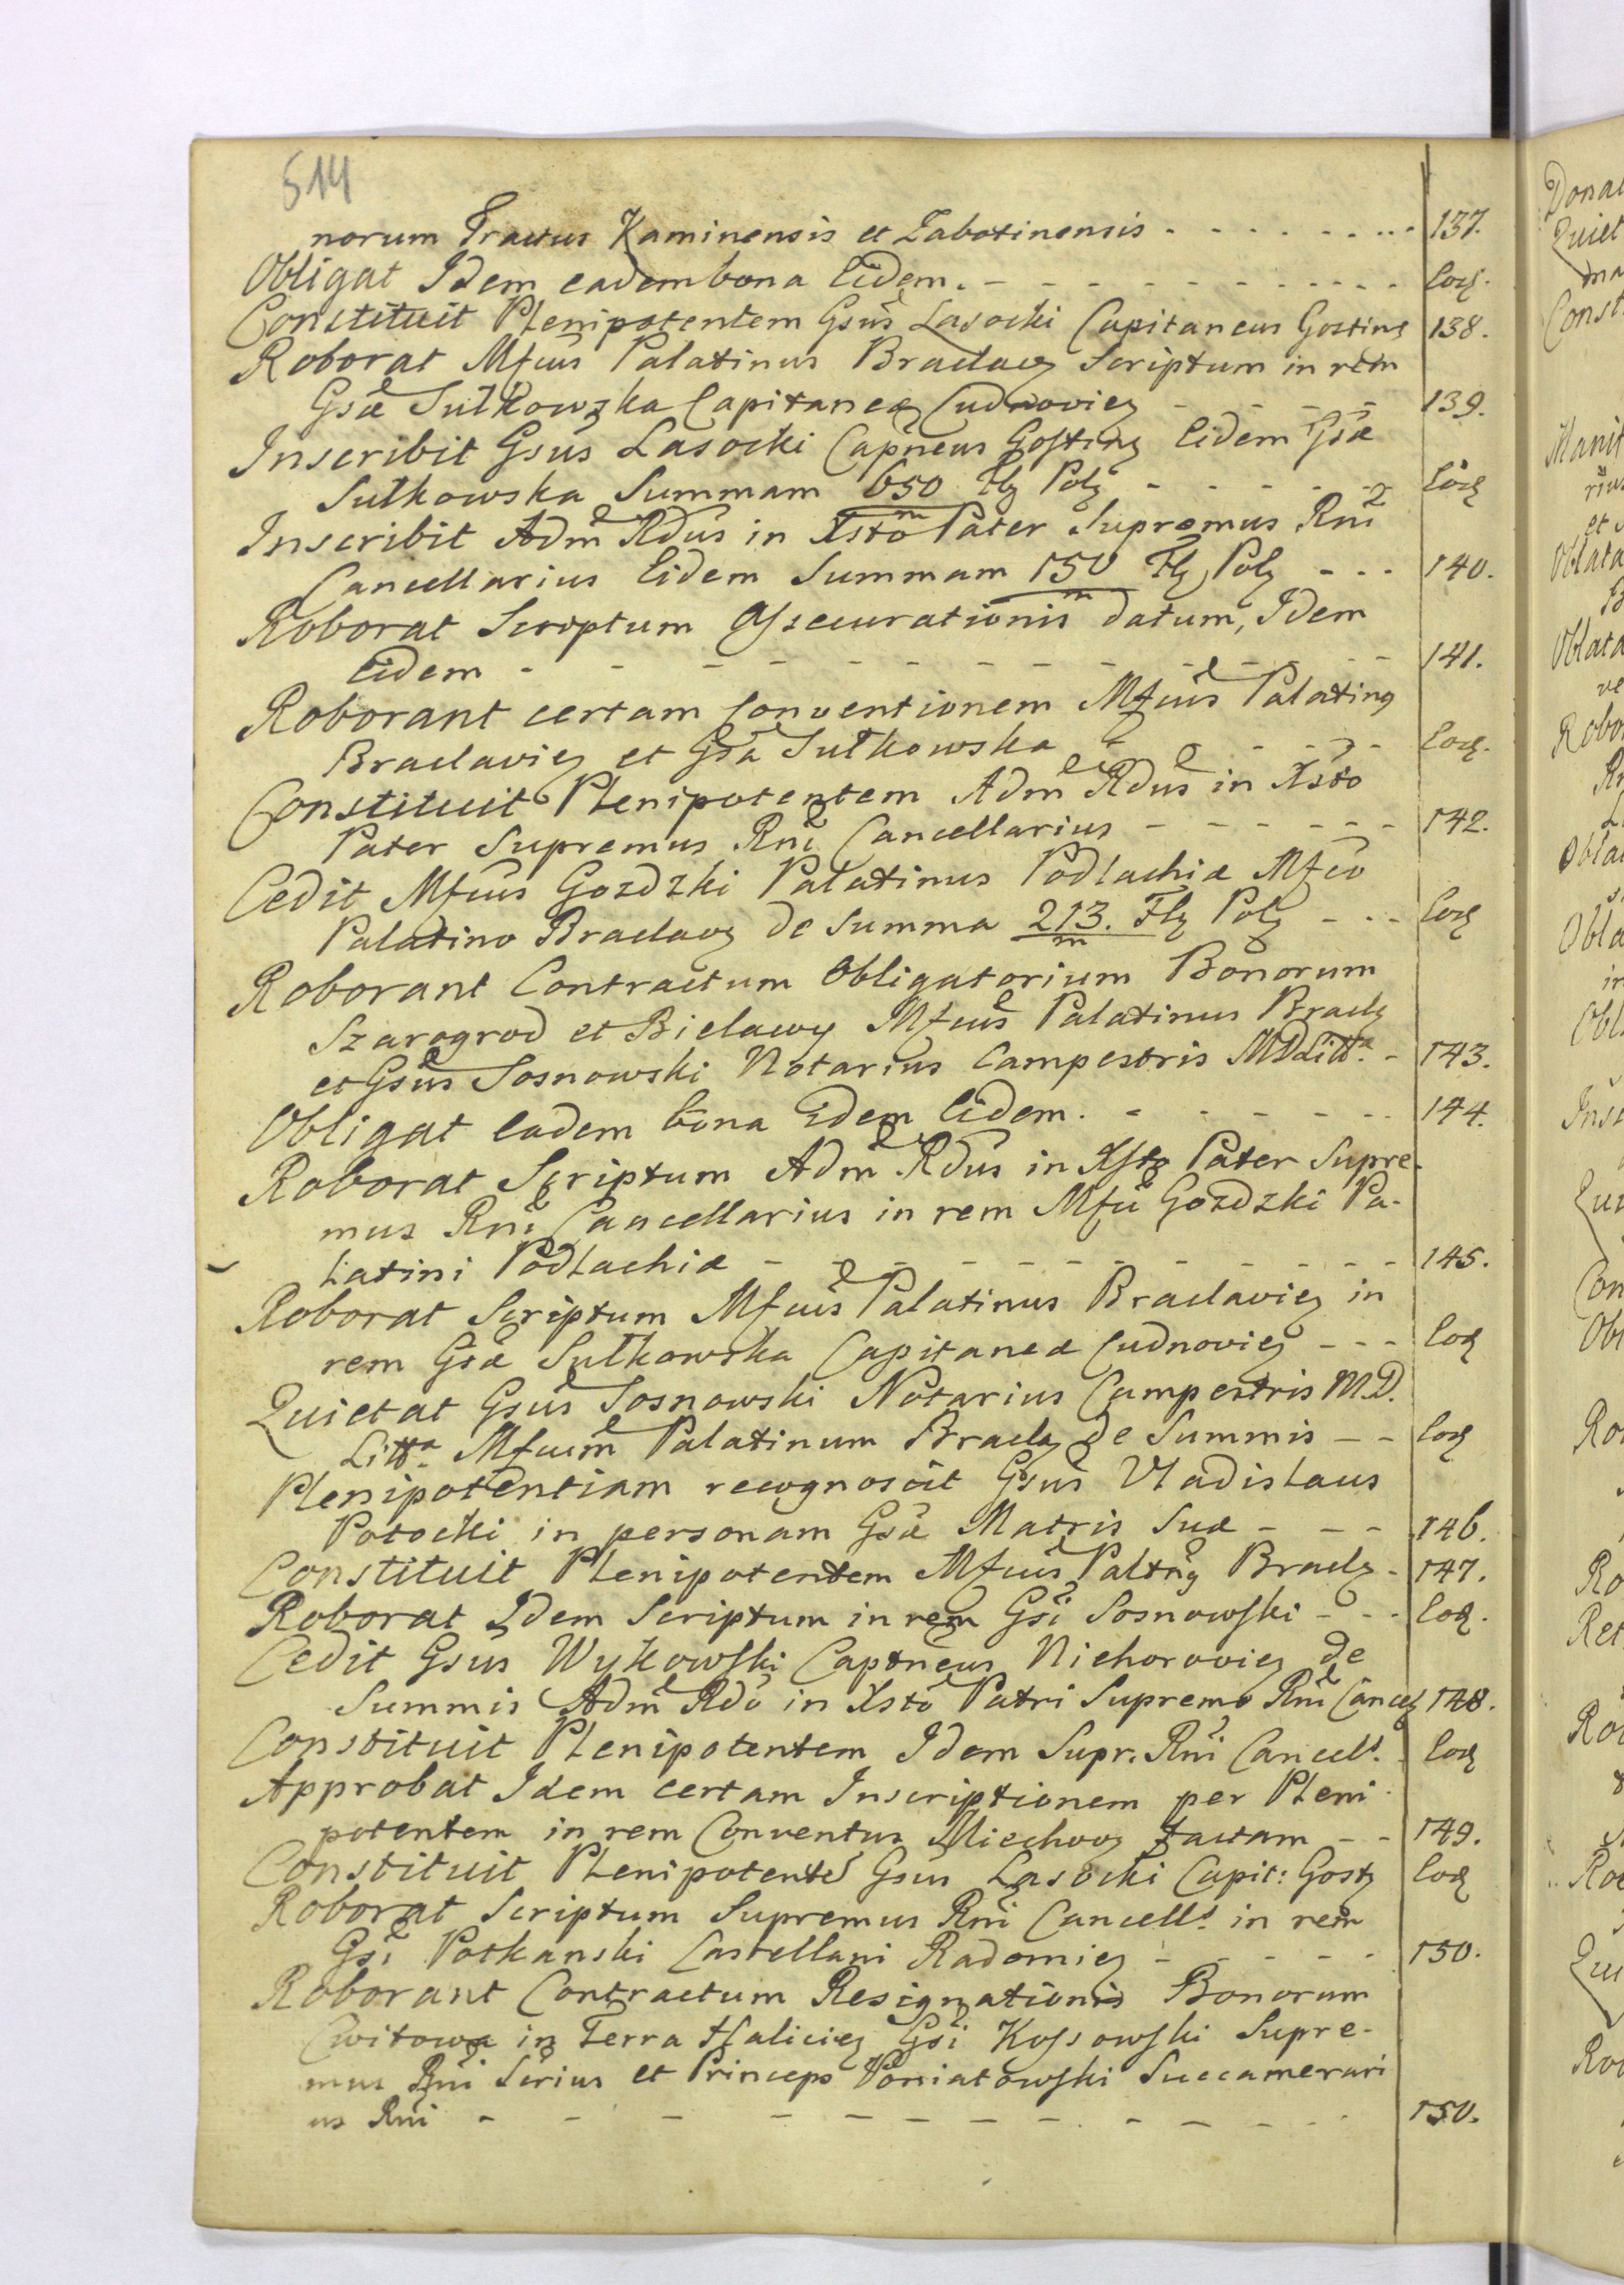 514
norum Tractus Kaminensis et Zabotinensis - - - - - - - - 137.
Obligat Idem eadem bona Eidem. - - - - - - - - - - Eod.
Constituit Plenipotentem Gsus Lasocki Capitaneus Gostinz 138.
Roborat Mfcus Palatinus Braclavz Scriptum in rem
Gsæ Sułkowska Capitaneæ Cudnoviez - - - - 139.
Inscribit Gsus Lasocki Capneus Gostinz Eidem Gsæ
Sułkowska Summam 650 m Flz Polz - - - - - Eod
Inscribit Adm Rdus in Xsto Pater Supremus Rni
Cancellarius Eidem Summam 150 m Flz Polz - - - 140.
Roborat Scriptum Assecurationis datum, Idem
Eidem - - - - - - - - - - - - - 141.
Roborant certam Conventionem Mfcus Palatinus
Braclaviez et Gsa Sułkowska - - - - - Eod.
Constituit Plenipotentem Adm Rdus in Xsto
Pater Supremus Rni Cancellarius - - - - - - 142.
Cedit Mfcus Gozdzki Palatinus Podlachiæ Mfco
Palatino Braclavz de Summa 213. m Flz Polz - - - Eod
Roborant Contractum Obligatorium Bonorum
Szarogrod et Bielawy Mfcus Palatinus Braclz
et Gsus Sosnowski Notarius Campestris MDLitt.a - 143.
Obligat Eadem bona Idem Eidem. - - - - - - 144.
Roborat Scriptum Adm Rdus in Xsto Pater Supre-
mus Rni Cancellarius in rem Mfci Gozdzki Pa-
latini Podlachiæ - - - - - - - - - - - 145.
Roborat Scriptum Mfcus Palatinus Braclaviez in
rem Gsæ Sułkowska Capitaneæ Cudnoviez - - - Eod
Quietat Gsus Sosnowski Notarius Campestris M.D.
Litt.a Mfcum Palatinum Braclz de Summis - - Eod
Plenipotentiam recognoscit Gsus Vladislaus
Potocki in personam Gsæ Matris Suæ - - - 146.
Constituit Plenipotentem Mfcus Paltnus Braclz - 147.
Roborat Idem Scriptum in rem Gsi Sosnowski - - - Eod.
Cedit Gsus Wykowski Captneus Niehoroviez de
Summis Adm Rdo in Xsto Patri Supremo Rni Cancez 148.
Constituit Plenipotentem Idem Supr. Rni Cancels. - Eod
Approbat Idem certam Inscriptionem per Pleni-
potentem in rem Conventus Miechovz factam - - 149.
Constituit Plenipotente Gsus Lasocki Capit: Gostz Eod
Roborat Scriptum Supremus Rni Cancells. in rem
Gsi Potkanski Castellani Radomiez - - - - - 150.
Roborant Contractum Resignationis Bonorum
Cwitowa in Terra Haliciez Gsi Kossowski Supre-
mus Rni Serius et Princeps Poniatowski Succamerari
us Rni - - - - - - - - - - - - 150.